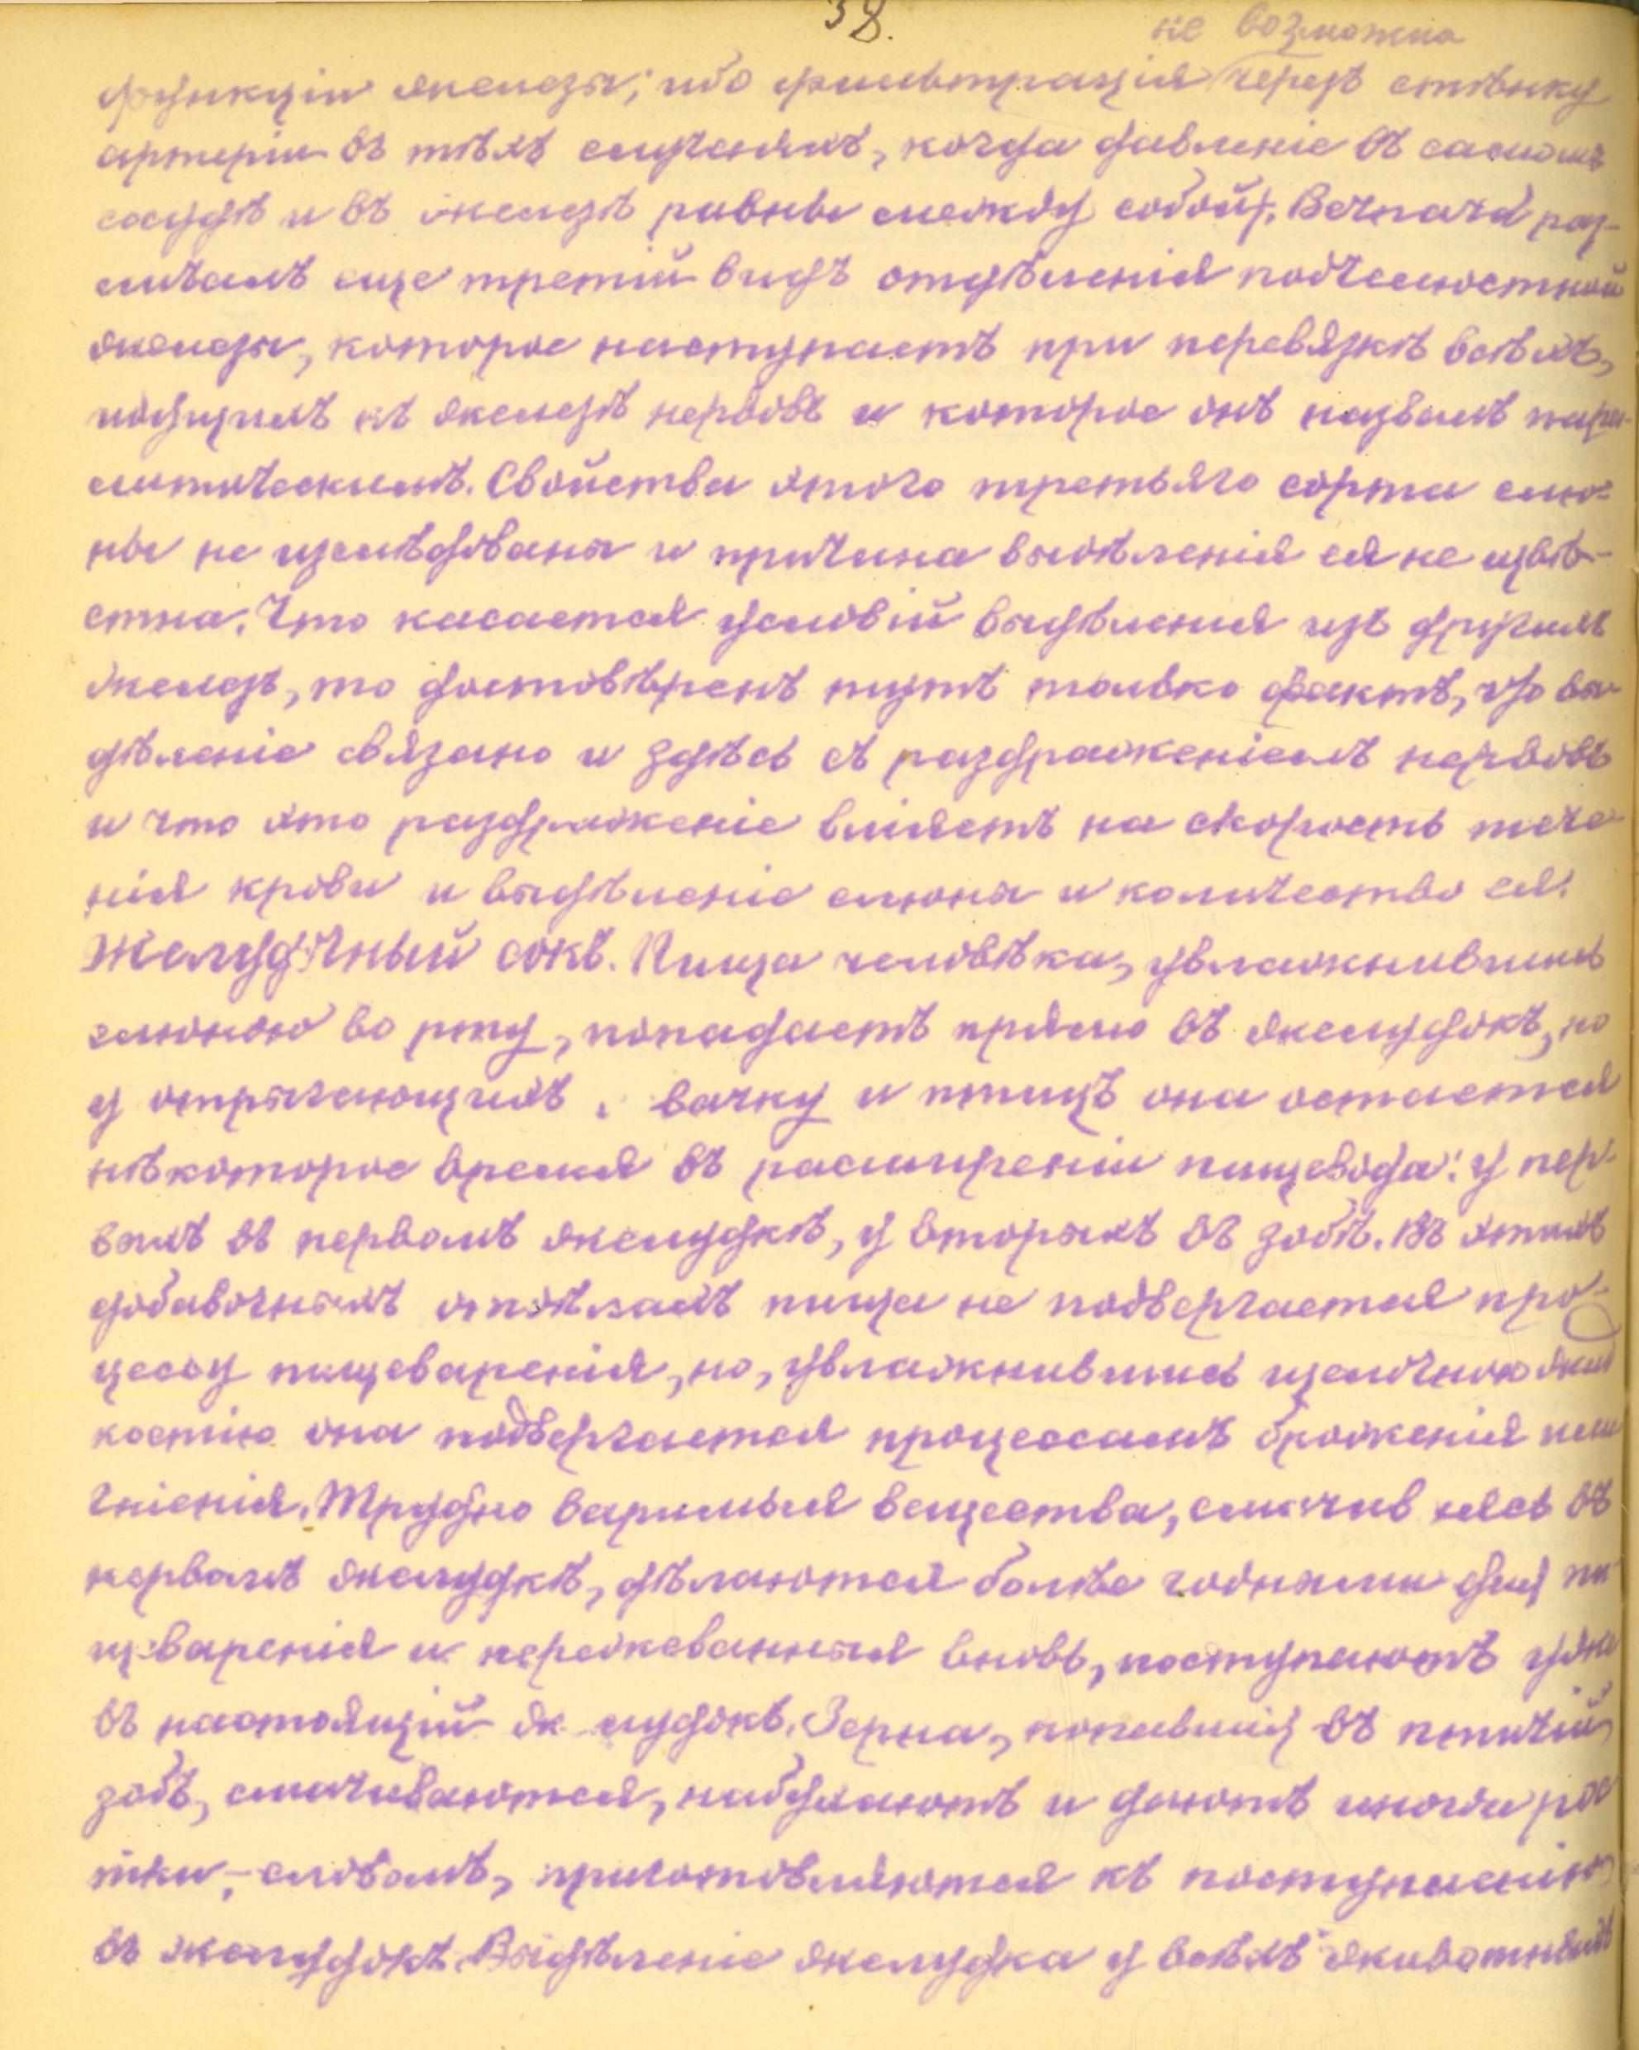 38.
не возможна
функціи железы; ибо фильтрація черезъ стѣнку
артеріи въ тѣхъ случаяхъ, когда давленіе въ самомъ
сосудѣ и въ железѣ равны между собой. Bernard раз-
личалъ еще третій видъ отдѣленія подчелюстной
железы, которое наступаетъ при перевязкѣ всѣхъ,
идущихъ къ железѣ нервовъ и которое онъ назвалъ пара-
литическимъ. Свойства этого третьяго сорта слю-
ны не изслѣдованы и причина выдѣленія ея не извѣ-
стна. Что касается условій выдѣленія изъ другихъ
железъ, то достовѣренъ тутъ только фактъ, что вы-
дѣленіе связано и здѣсь съ раздраженіемъ нервовъ
и что это раздраженіе вліяетъ на скорость тече-
нія крови и выдѣленіе слюны и количество ея.
Желудочный сокъ. Пища человѣка, увлажнившись
слюною во рту, попадаетъ прямо въ желудокъ, но
у отрыгающихъ жвачку и птицъ она остается
нѣкоторое время въ расширеніи пищевода: у пер-
выхъ въ первомъ желудкѣ, у вторыхъ въ зобѣ. Въ этихъ
добавочныхъ отдѣлахъ пища не подвергается про-
цессу пищеваренія, но, увлажнившись щелочною жид
костію она подвергается процессамъ броженія или
гніенія. Трудно варимыя вещества, смягчив шись въ
первомъ желудкѣ, дѣлаются болѣе годными для пи
щеваренія и пережеванныя вновь, поступаютъ уже
въ настоящій желудокъ. Зерна, попавшія въ птичій
зобъ, смачиваются, набухаютъ и даютъ иногда рос
тки,- словомъ, приготовляются къ поступленію
въ желудокъ. Выдѣленіе желудка у всѣхъ животныхъ